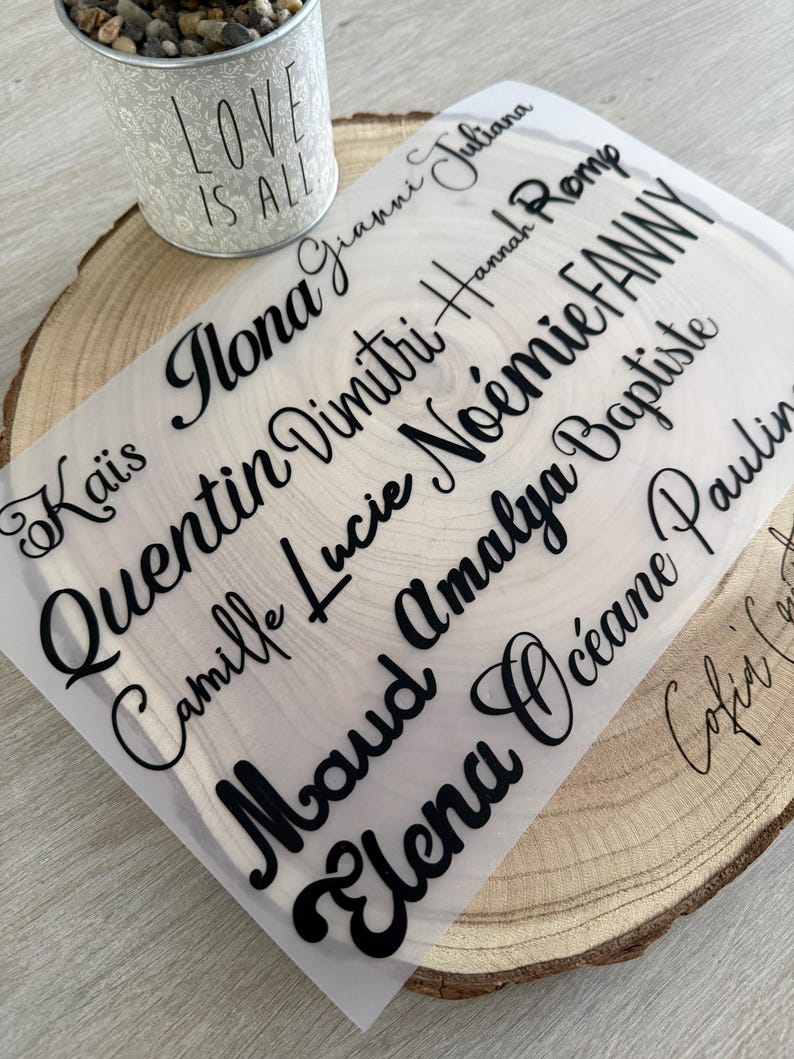 LOVE
IS ALL.
Kaïs Ilona Gianni Juliana
Quentin Dimitri Hannah Romy
Camille Lucie Noémie FANNY
Maud Amalya Baptiste
Elena Océane Paulin